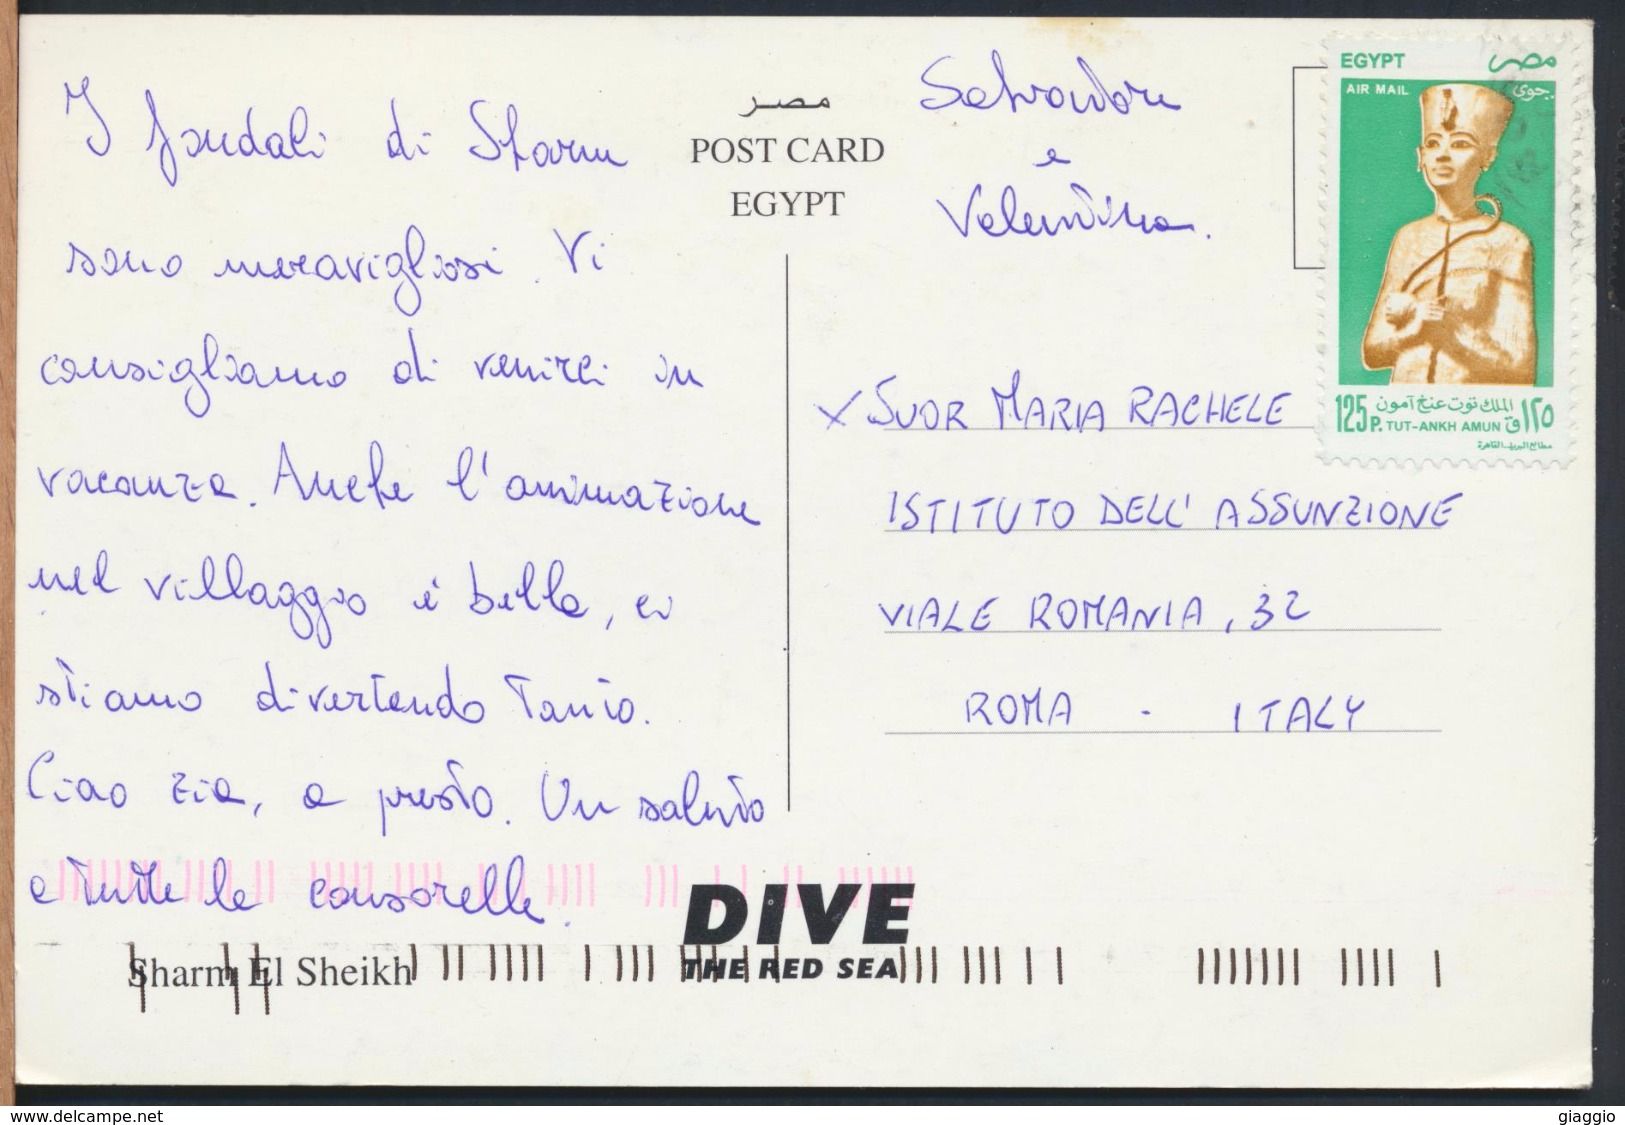 I fondali di Sharm
sono meravigliosi. Vi
consigliamo di venirci in
vacanza. Anche l'animazione
nel villaggio è bella, ci
stiamo divertendo tanto.
Ciao zia, a presto. Un saluto
a tutte le consorelle.
Sharm El Sheikh
مصر
POST CARD
EGYPT
Salvatore
e
Valentina.
EGYPT مصر
AIR MAIL جوى
125 P. الملك توت عنخ آمون ١٢٥ ق
TUT-ANKH AMUN
مطابع البريد القاهرة
x SUOR MARIA RACHELE
ISTITUTO DELL' ASSUNZIONE
VIALE ROMANIA, 32
ROMA - ITALY
DIVE
THE RED SEA
www.delcampe.net
giaggio